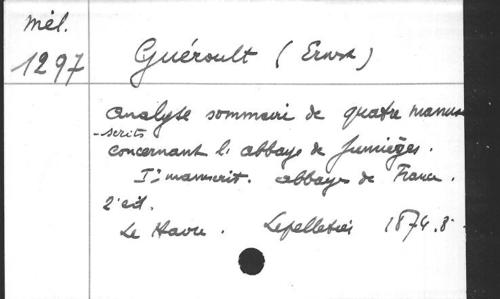 Mél.
1297
Guéroult (Ernest)
Analyse sommaire de quatre manus
-scrits
concernant l'abbaye de Jumièges.
I: manuscrit. abbayes de France.
2e éd.
Le Havre. Lepelletier 1874. 8°